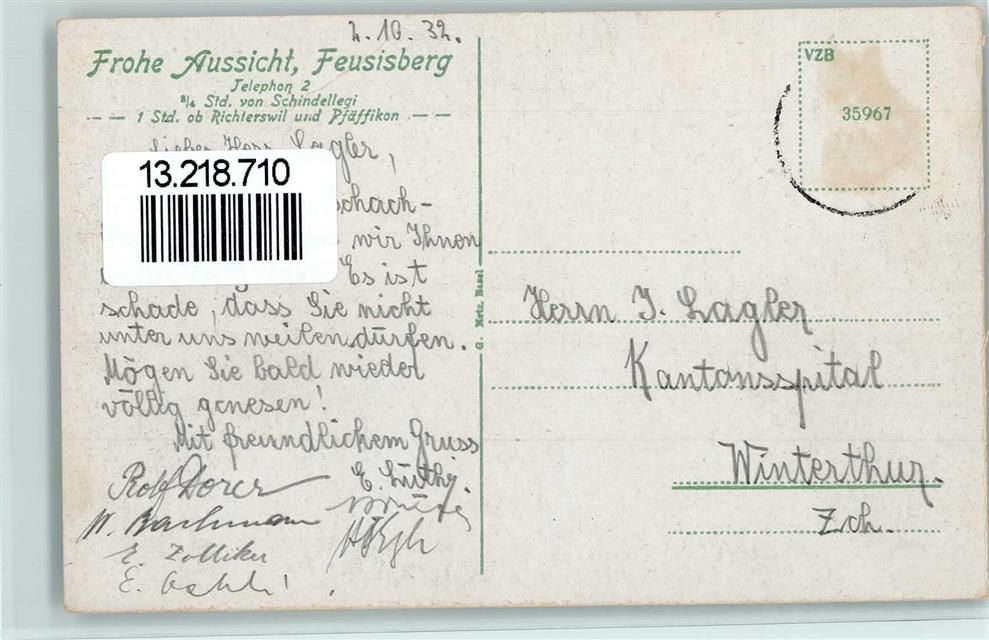 2.10.32.
Frohe Aussicht, Feusisberg
Telephon 2
3/4 Std. von Schindellegi
1 Std. ob Richterswil und Pfäffikon
Lieber Herr Lagler,
13.218.710
schach-
wir Ihnen
Es ist
schade, dass Sie nicht
unter uns weilen dürfen.
Mögen Sie bald wieder
völlig genesen!
Mit freundlichem Gruss
E. Lüthy.
Rolf Dorer
W. Bachmann
E. Zolliker
E.
G. Metz, Basel
VZB
35967
Herrn J. Lagler
Kantonsspital
Winterthur.
Zch.